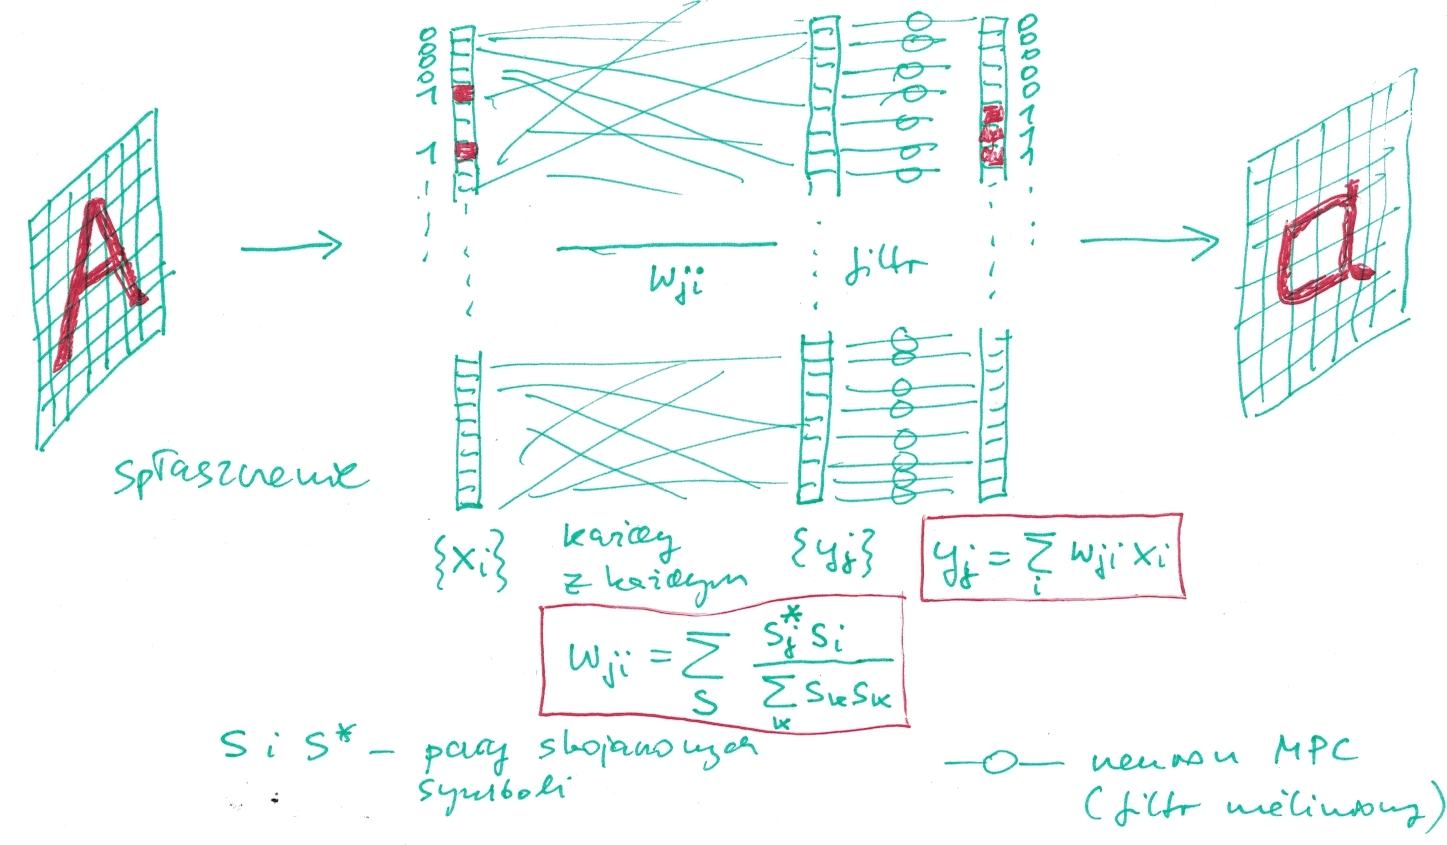 0
0
0
0
1
1
0
0
0
0
0
1
1
1
A
a
wji
filtr
spłaszczenie
{xi}
każdy
z każdym
{yj}
yj = Σi wji xi
wji = ΣS Sj* Si / Σk Sk Sk
S i S* – pary skojarzonych
symboli
—○— neuron MPC
(filtr nieliniowy)